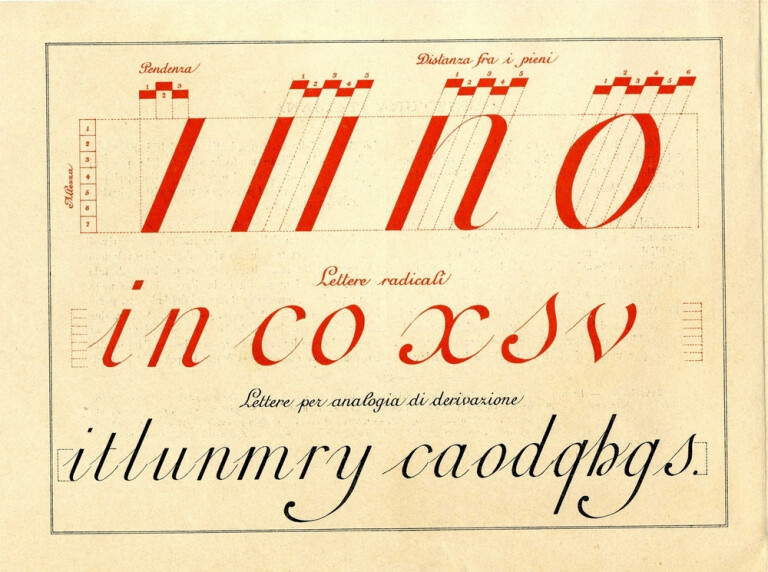 Pendenza
Distanza fra i pieni
1 2 3
1 2 3 4 5
1 2 3 4 5
1 2 3 4 5 6
Altezza
1
2
3
4
5
6
7
ı ıı n o
Lettere radicali
in co x s v
Lettere per analogia di derivazione
itlunmry caodqhgs.